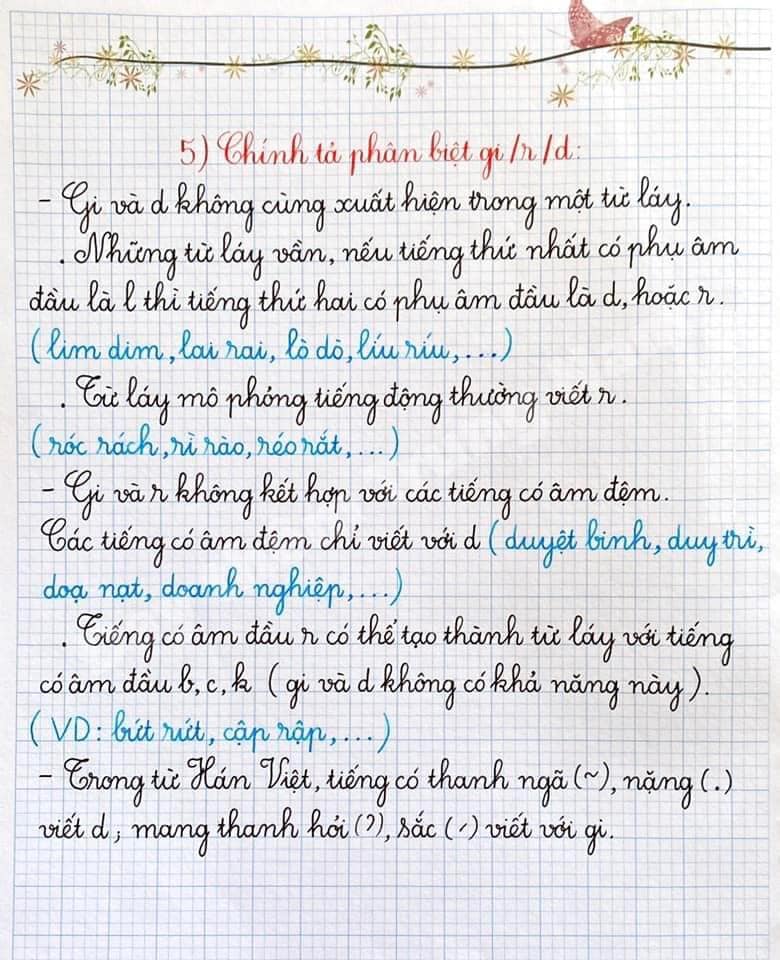 5) Chính tả phân biệt gi/r/d:
- Gi và d không cùng xuất hiện trong một từ láy.
. Những từ láy vần, nếu tiếng thứ nhất có phụ âm
đầu là l thì tiếng thứ hai có phụ âm đầu là d, hoặc r.
(lim dim, lai rai, lò dò, líu ríu,...)
. Từ láy mô phỏng tiếng động thường viết r.
(róc rách, rì rào, réo rắt,...)
- Gi và r không kết hợp với các tiếng có âm đệm.
Các tiếng có âm đệm chỉ viết với d (duyệt binh, duy trì,
doạ nạt, doanh nghiệp,...)
. Tiếng có âm đầu r có thể tạo thành từ láy với tiếng
có âm đầu b, c, k (gi và d không có khả năng này).
(VD: bứt rứt, cập rập,...)
- Trong từ Hán Việt, tiếng có thanh ngã (~), nặng (.)
viết d; mang thanh hỏi (?), sắc (´) viết với gi.